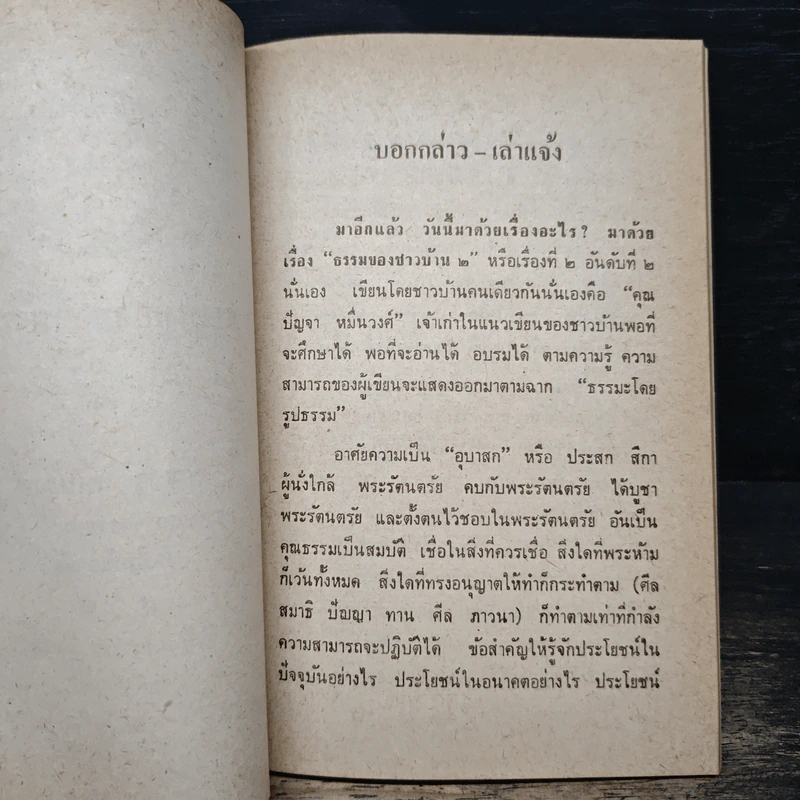 บอกกล่าว – เล่าแจ้ง
มาอีกแล้ว วันนี้มาด้วยเรื่องอะไร? มาด้วย
เรื่อง “ธรรมของชาวบ้าน ๒” หรือเรื่องที่ ๒ อันดับที่ ๒
นั่นเอง เขียนโดยชาวบ้านคนเดียวกันนั่นเองคือ “คุณ
ปัญจา หมื่นวงศ์” เจ้าเก่าในแนวเขียนของชาวบ้านพอที่
จะศึกษาได้ พอที่จะอ่านได้ อบรมได้ ตามความรู้ ความ
สามารถของผู้เขียนจะแสดงออกมาตามฉาก “ธรรมะโดย
รูปธรรม”
อาศัยความเป็น “อุบาสก” หรือ ประสก สีกา
ผู้นั่งใกล้ พระรัตนตรัย คบกับพระรัตนตรัย ได้บูชา
พระรัตนตรัย และตั้งตนไว้ชอบในพระรัตนตรัย อันเป็น
คุณธรรมเป็นสมบัติ เชื่อในสิ่งที่ควรเชื่อ สิ่งใดที่พระห้าม
ก็เว้นทั้งหมด สิ่งใดที่ทรงอนุญาตให้ทำก็กระทำตาม (ศีล
สมาธิ ปัญญา ทาน ศีล ภาวนา) ก็ทำตามเท่าที่กำลัง
ความสามารถจะปฏิบัติได้ ข้อสำคัญให้รู้จักประโยชน์ใน
ปัจจุบันอย่างไร ประโยชน์ในอนาคตอย่างไร ประโยชน์